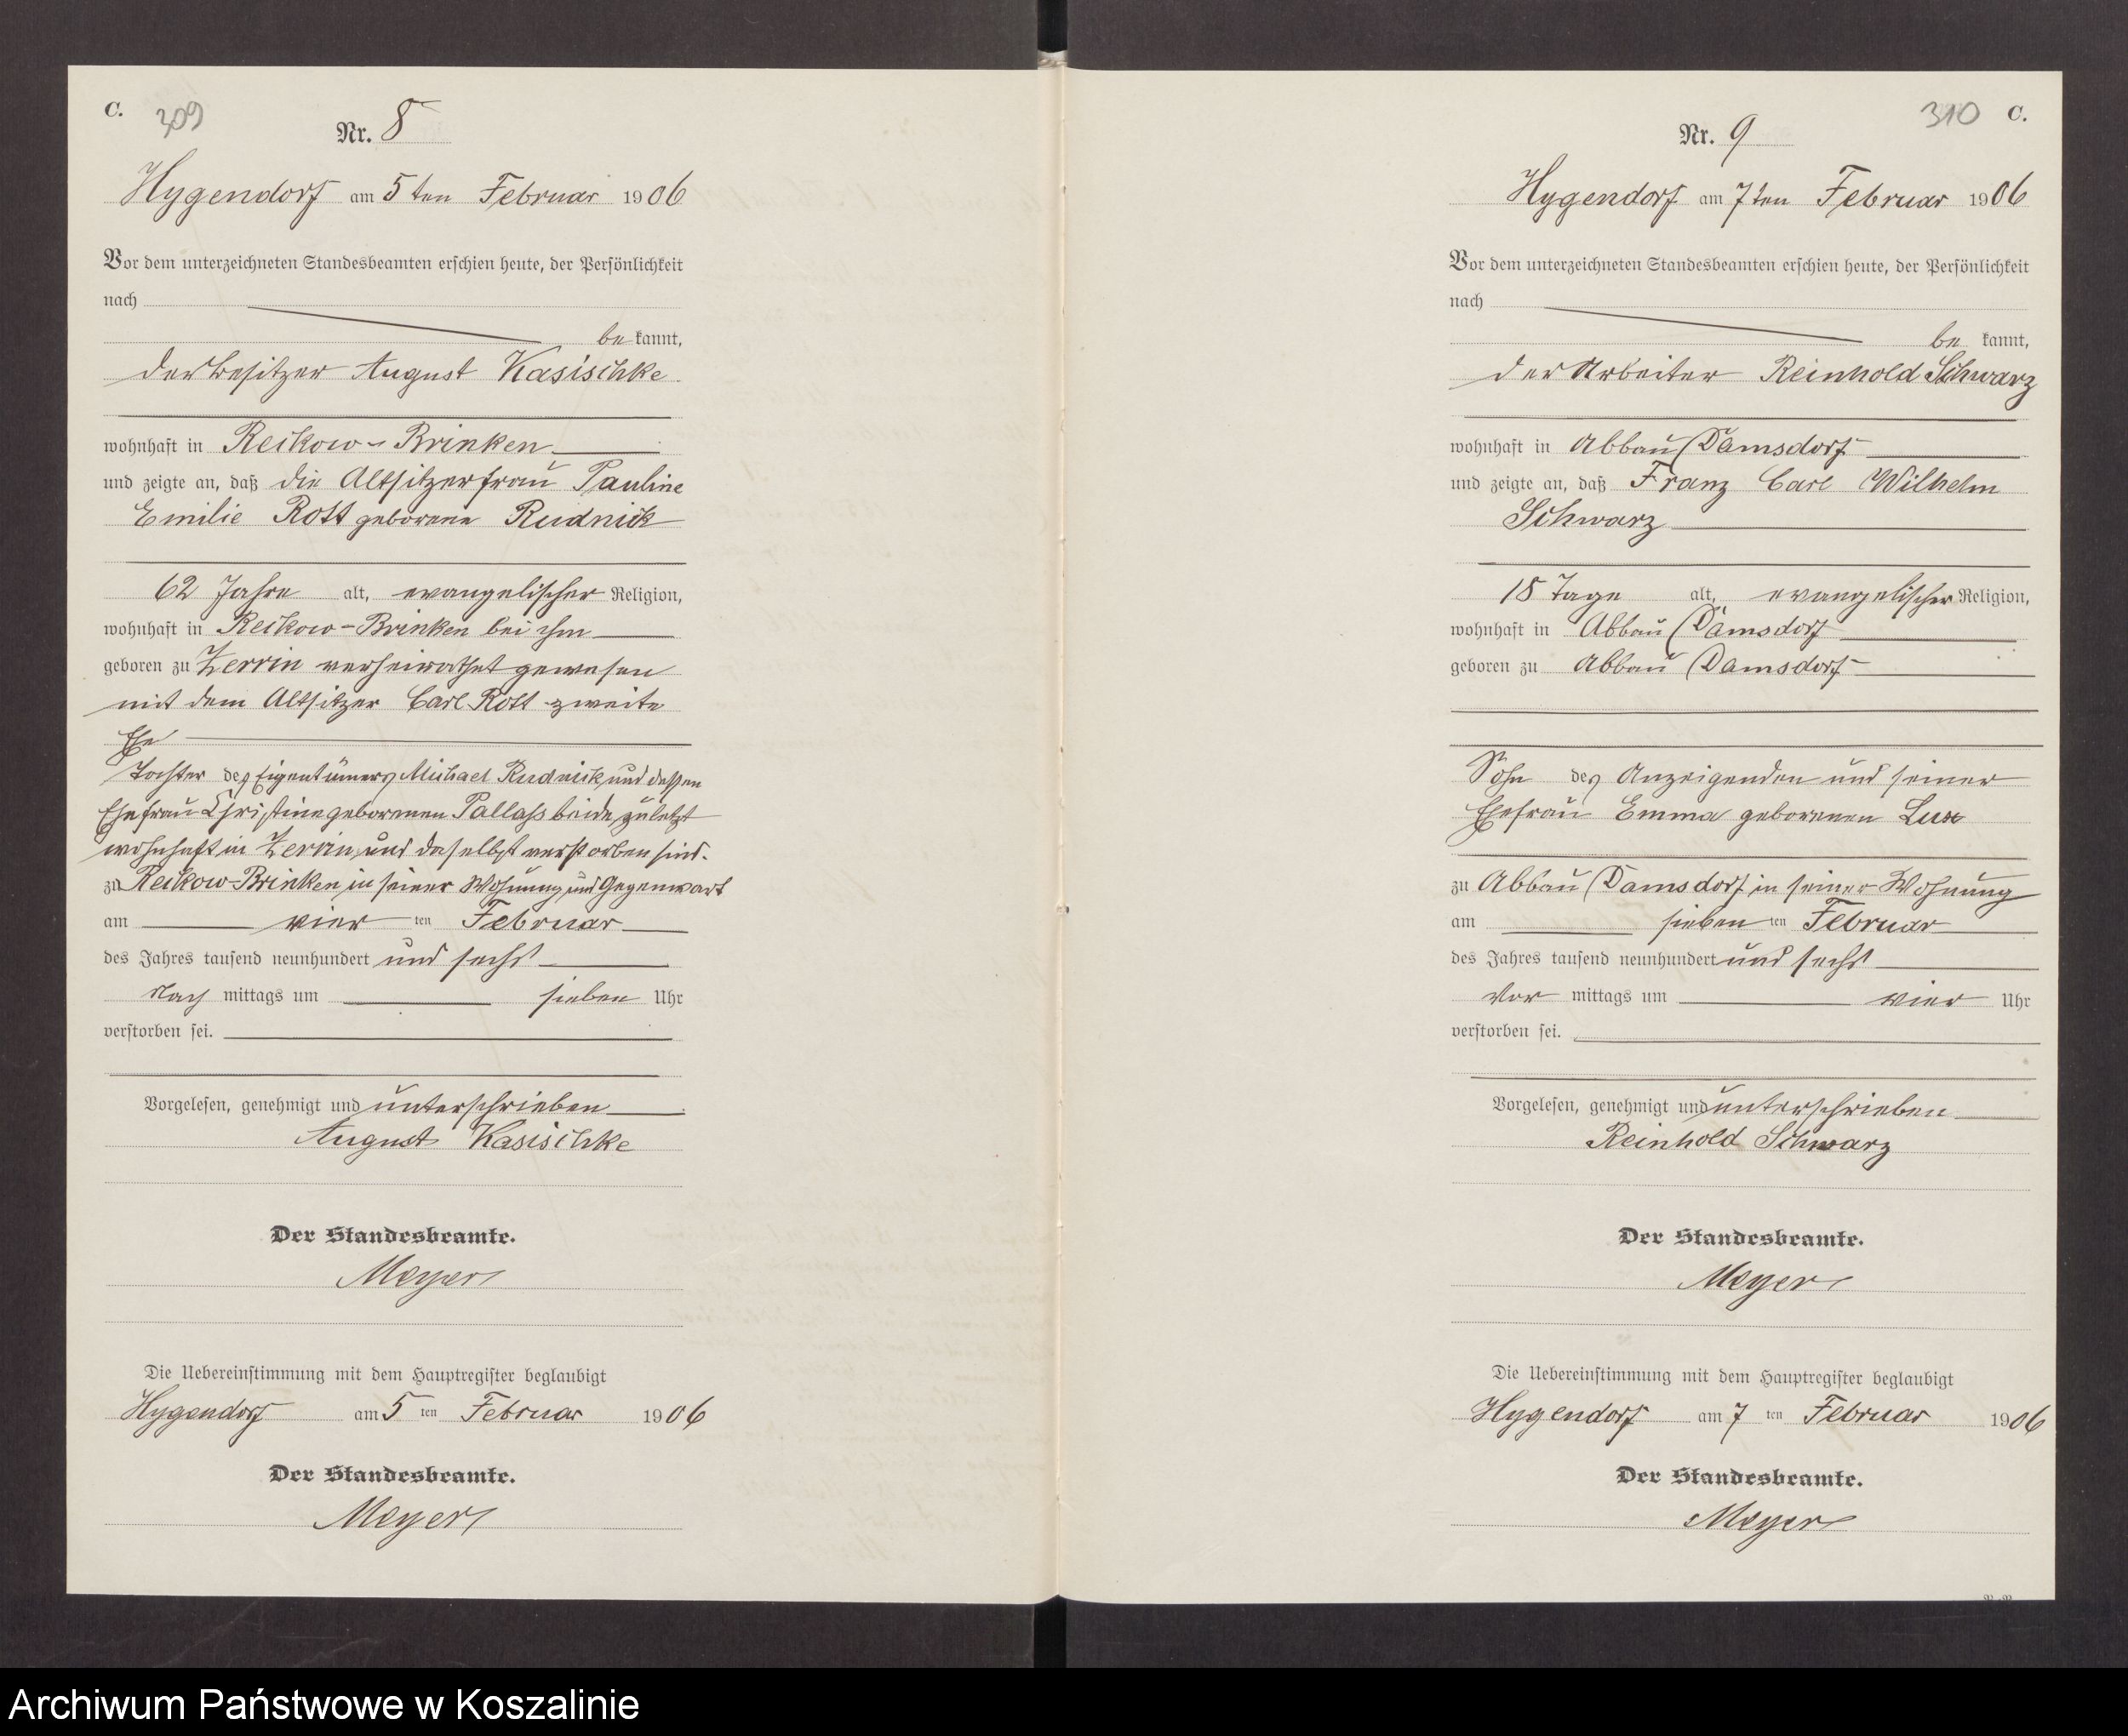 C. 309
Nr. 8
Hygendorf am 5ten Februar 1906
Vor dem unterzeichneten Standesbeamten erschien heute, der Persönlichkeit
nach
be kannt,
der Besitzer August Kasischke
wohnhaft in Reikow-Brinken
und zeigte an, daß die Altsitzerfrau Pauline
Emilie Rott geborene Rudnick
62 Jahre alt, evangelischer Religion,
wohnhaft in Reikow-Brinken bei ihm
geboren zu Zerrin verheirathet gewesen
mit dem Altsitzer Carl Rott zweite
Ehe
Tochter des Eigentümers Michael Rudnick und dessen
Ehefrau Christine geborenen Pallass beide zuletzt
wohnhaft in Zerrin und daselbst verstorben sind.
zu Reikow-Brinken in seiner Wohnung und Gegenwart
am vier ten Februar
des Jahres tausend neunhundert und sechs
Nach mittags um sieben Uhr
verstorben sei.
Vorgelesen, genehmigt und unterschrieben
August Kasischke
Der Standesbeamte.
Meyer
Die Uebereinstimmung mit dem Hauptregister beglaubigt
Hygendorf am 5 ten Februar 1906
Der Standesbeamte.
Meyer
310 C.
Nr. 9
Hygendorf am 7ten Februar 1906
Vor dem unterzeichneten Standesbeamten erschien heute, der Persönlichkeit
nach
be kannt,
der Arbeiter Reinhold Schwarz
wohnhaft in Abbau Damsdorf
und zeigte an, daß Franz Carl Wilhelm
Schwarz
18 Tage alt, evangelischer Religion,
wohnhaft in Abbau Damsdorf
geboren zu Abbau Damsdorf
Sohn des Anzeigenden und seiner
Ehefrau Emma geborenen Lux
zu Abbau Damsdorf in seiner Wohnung
am sieben ten Februar
des Jahres tausend neunhundert und sechs
Vor mittags um vier Uhr
verstorben sei.
Vorgelesen, genehmigt und unterschrieben
Reinhold Schwarz
Der Standesbeamte.
Meyer
Die Uebereinstimmung mit dem Hauptregister beglaubigt
Hygendorf am 7 ten Februar 1906
Der Standesbeamte.
Meyer
Archiwum Państwowe w Koszalinie